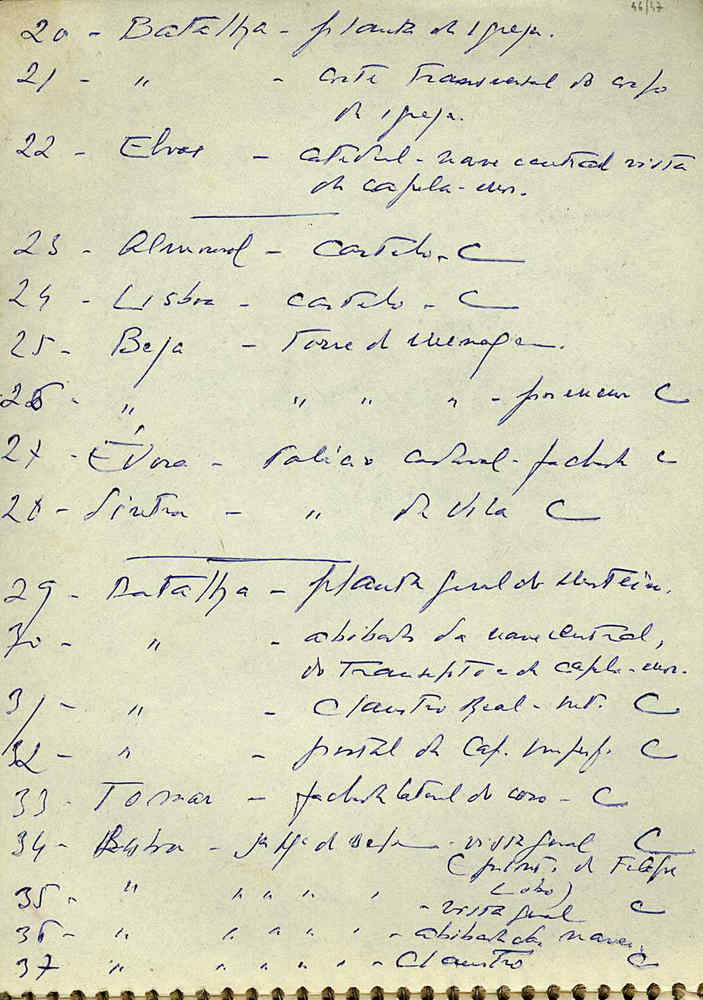 46/47
20 - Batalha - planta da igreja.
21 - " - corte transversal do corpo
da igreja.
22 - Elvas - catedral - nave central vista
da capela-mor.
23 - Almourol - castelo - C
24 - Lisboa - castelo - C
25 - Beja - Torre de menagem.
26 - " " " " - pormenor C
27 - Évora - Palácio - fachada C
28 - Sintra - " da Vila C
29 - Batalha - planta geral do Mosteiro.
30 - " - abóbada da nave central,
do transepto e da capela-mor.
31 - " - Claustro Real - C
32 - " - portal da Cap. Imperf. C
33 - Tomar - fachada lateral do coro - C
34 - Lisboa - Sta Mª de Belém - vista geral C
( de Filipe
Lobo)
35 - " " " " " - vista geral C
36 - " " " " " - abóbada da nave.
37 " " " " " - Claustro C